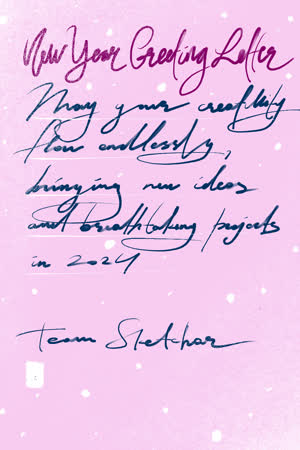 New Year Greeting Letter
May your creativity
flow endlessly,
bringing new ideas
and breathtaking projects
in 2024
Team Sketchar